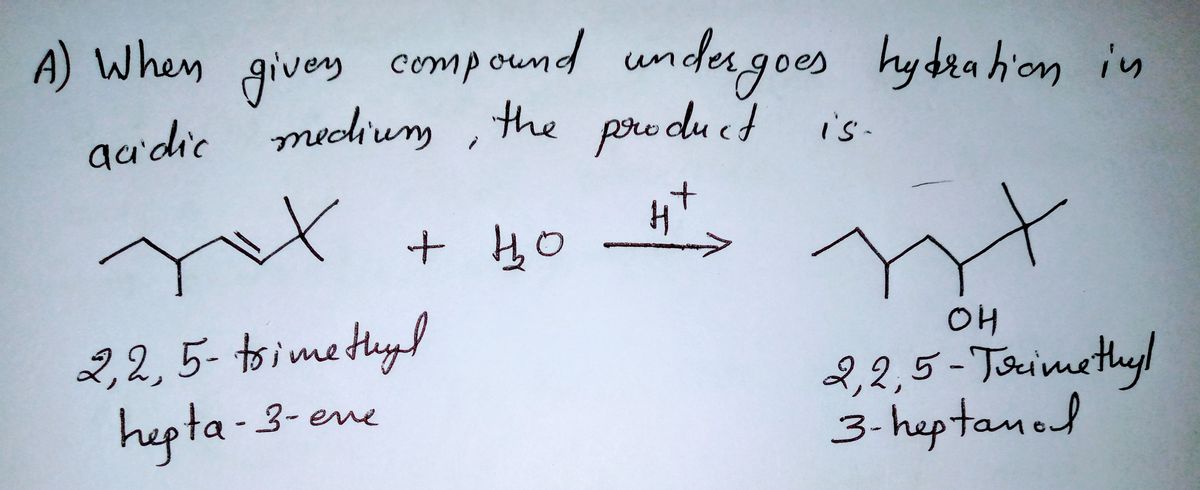 A) When given compound undergoes hydration in
acidic medium, the product is-
+ H₂O H⁺
OH
2,2,5-trimethyl
hepta-3-ene
2,2,5-Trimethyl
3-heptanol